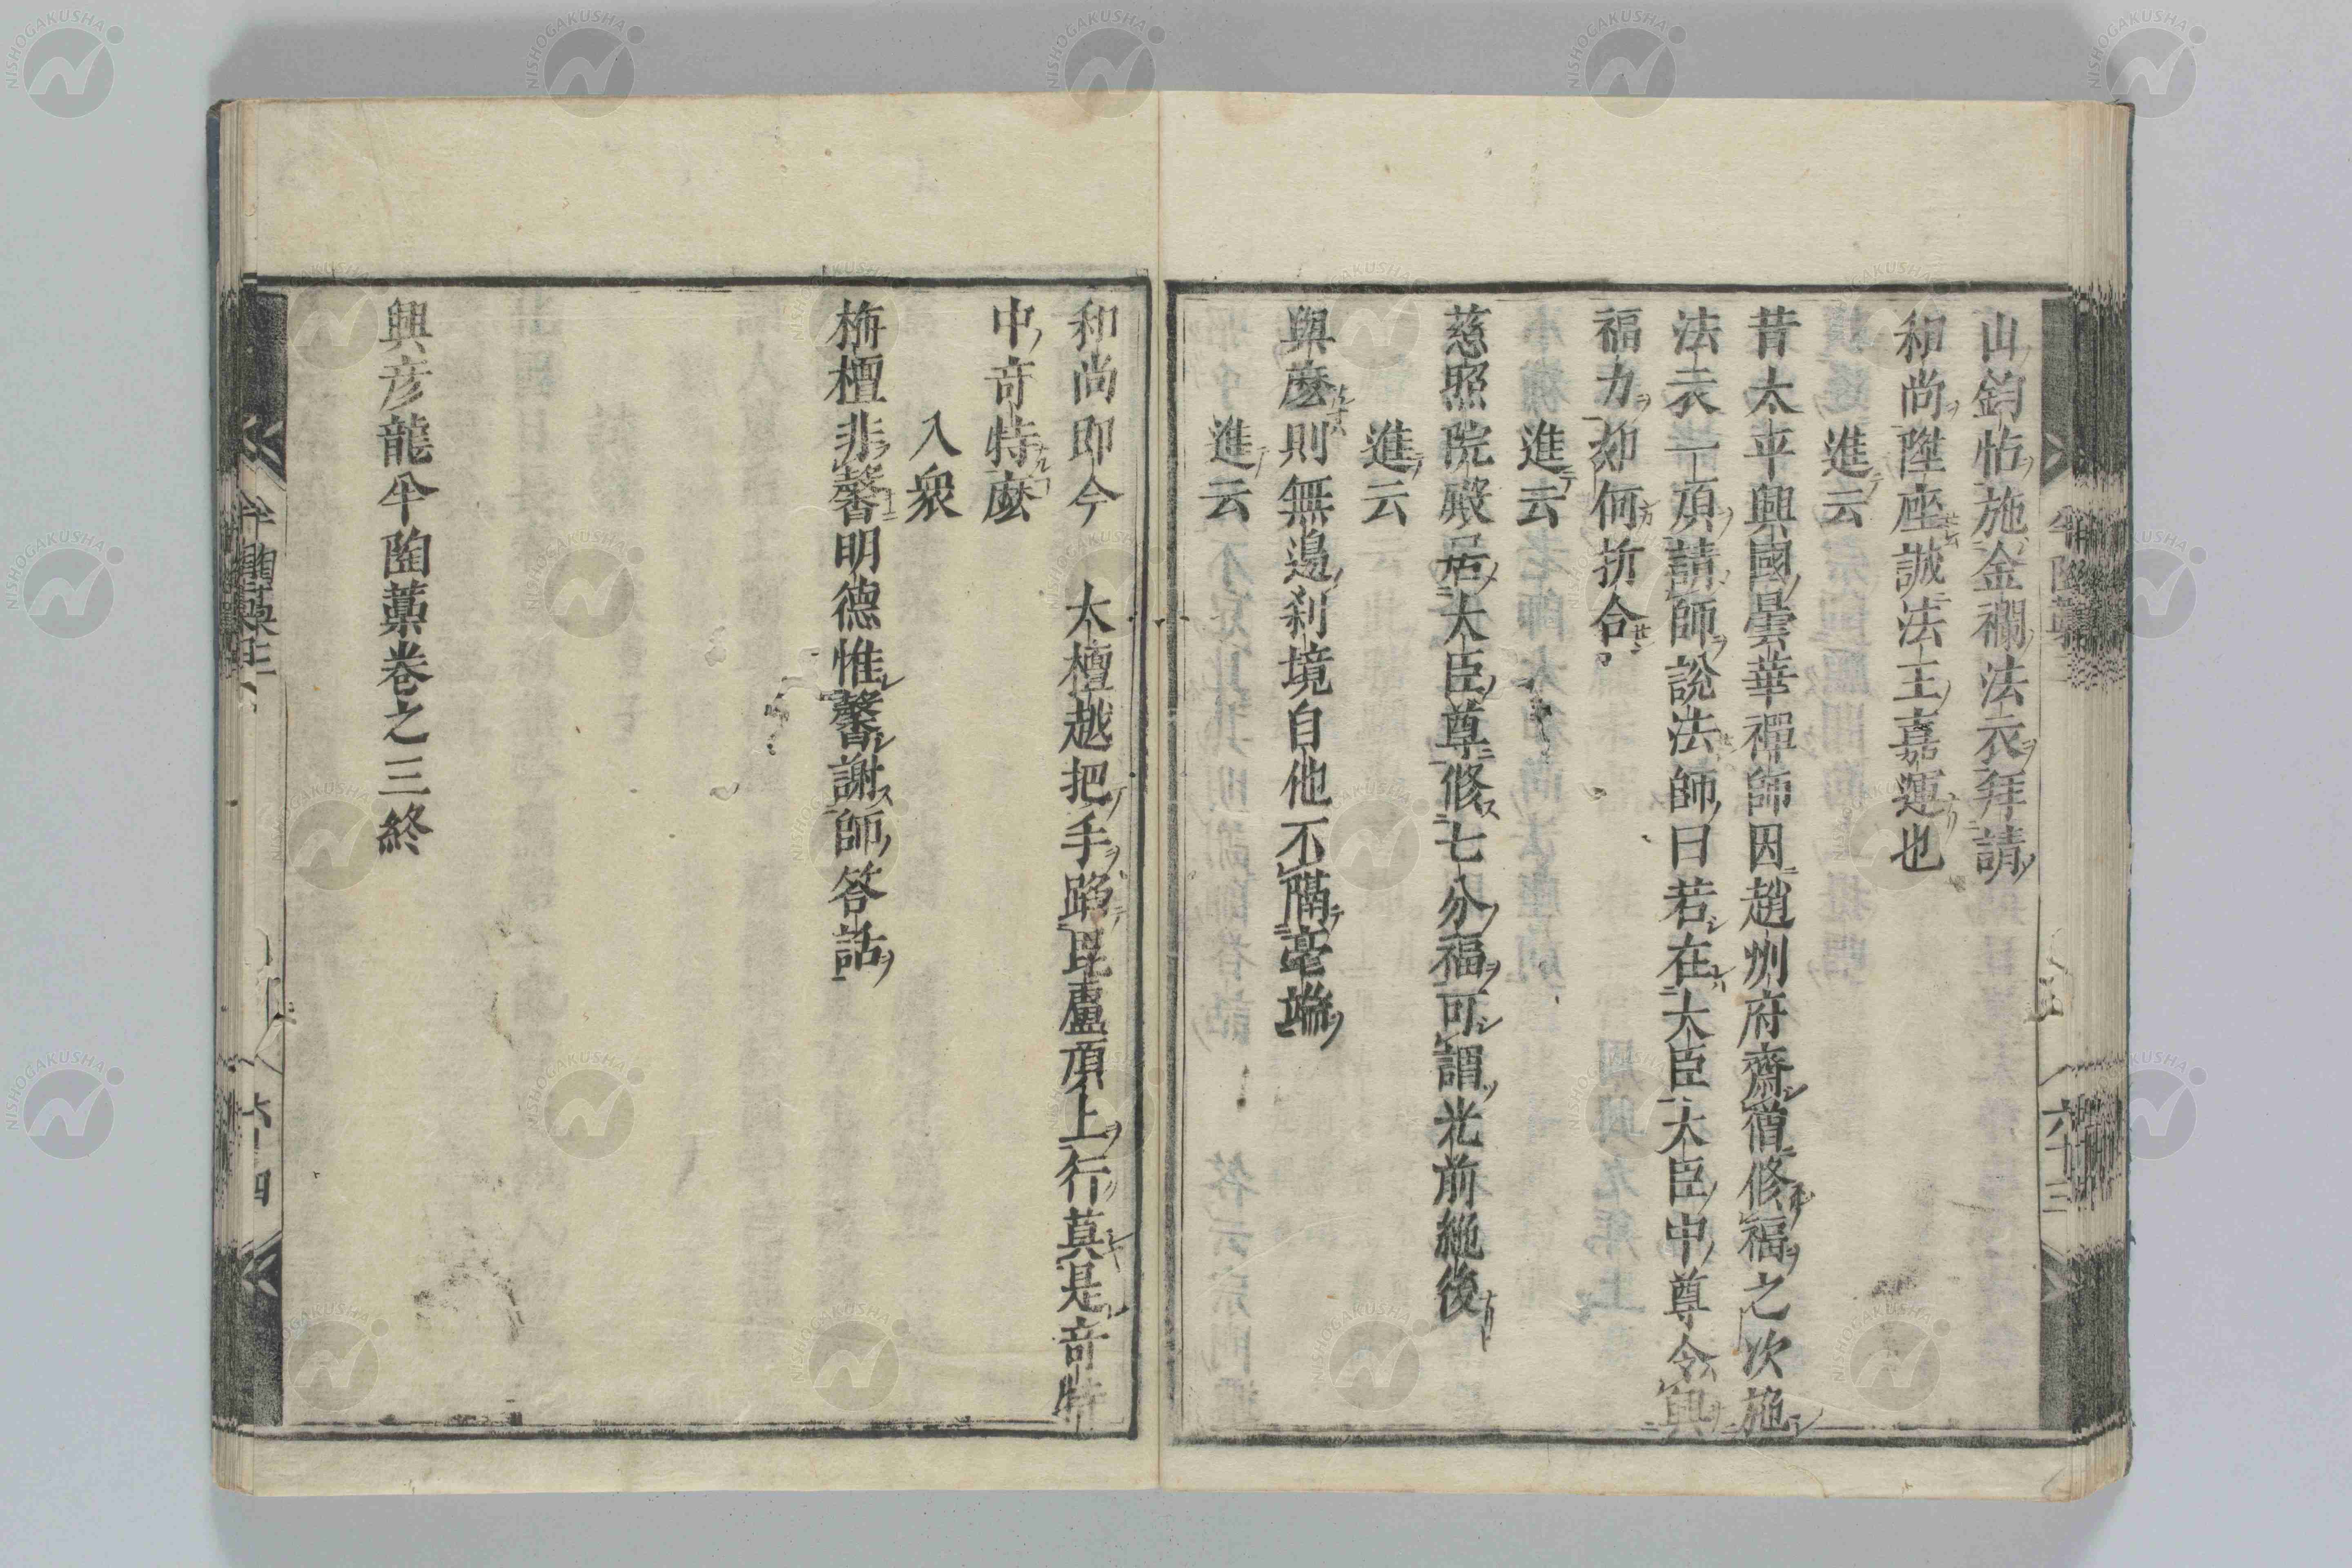 山鈞帖施金襴法衣拜請
和尚陞座誠法王嘉運也
進云
昔太平興國曇華禪師因趙州府齋僧修福之次施
法衣一頂請師說法師曰若在大臣大臣中尊令與
福力却何折合
進云
慈照院殿居大臣尊修七分福可謂光前絶後
進云
與麼則無邊刹境自他不隔毫端
進云
和尚即今 太檀越把手蹈毘盧頂上行莫是奇特
中奇特麼
入衆
栴檀非馨明德惟馨謝師答話
興彦龍半陶藁卷之三終
半陶藁三
六十四
六十三
NISHOGAKUSHA